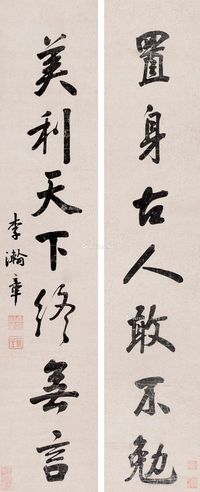 置身古人敢不勉
美利天下终無言
李瀚章